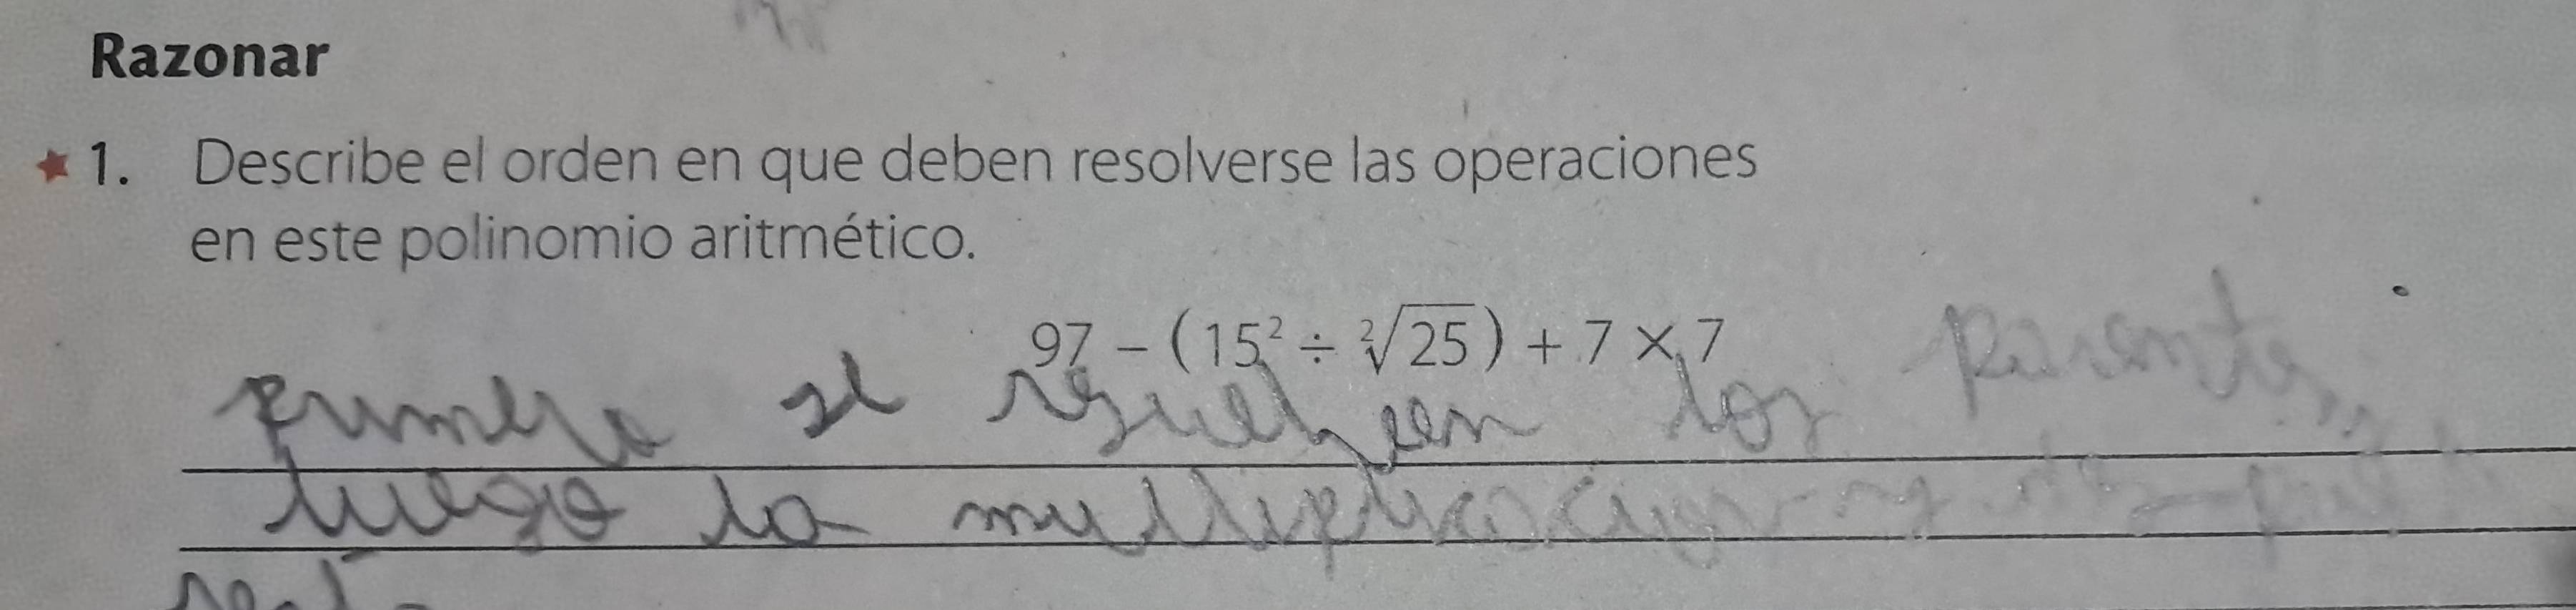 Razonar
★ 1. Describe el orden en que deben resolverse las operaciones
en este polinomio aritmético.
97 – (15² ÷ ²√25) + 7 × 7
primero se resuelven los parentesis
luego la